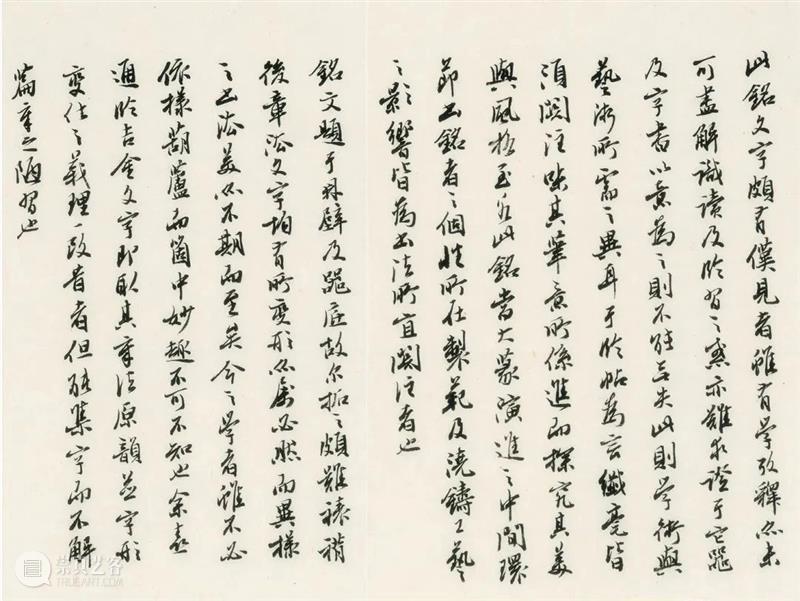 此銘文字頗有僅見者雖有學者攷釋仍未
可盡解識讀及臨習之惑亦難求證于它器
及字書以意為之則不能無失此則學術與
藝術所需之異耳于臨帖為言纖毫皆
須關注味其筆意所係進而探究其美
與風格至若此銘當大篆演進之中間環
節書銘者之個性所在製範及澆鑄工藝
之影響皆為書法所宜關注者也
銘文題于外壁及器底故尔拓之頗難裱褙
後章法文字均有所變形亦屬必然而異樣
之書法美亦不期而至矣今之學者雖不必
依樣葫蘆而箇中妙趣不可不知也余喜
通臨吉金文字即取其章法原韻並字形
變化之義理一改昔者但能集字而不解
篇章之陋習也
崇真艺客
TRUEART.COM